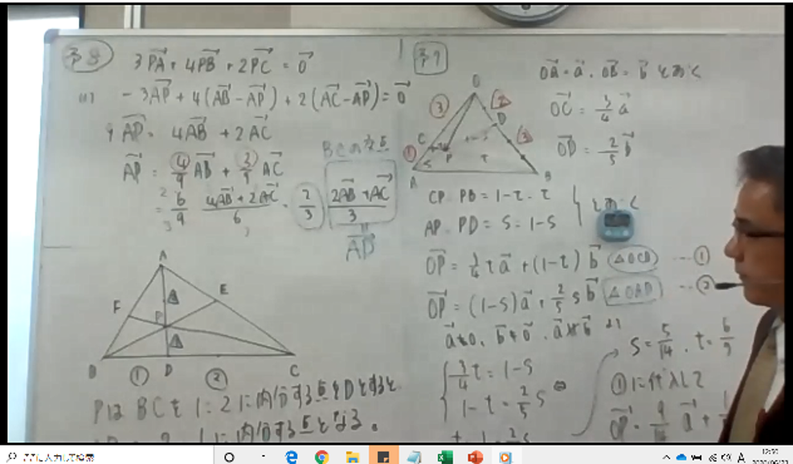 予8
3PA→ + 4PB→ + 2PC→ = 0→
(1) -3AP→ + 4(AB→ - AP→) + 2(AC→ - AP→) = 0→
9AP→ = 4AB→ + 2AC→
BCの交点
AP→ = 4/9 AB→ + 2/9 AC→
= 6/9 · (4AB→ + 2AC→)/6 = 2/3 · (2AB→ + AC→)/3
AD→
A
F E
P
B ① D ② C
PはBCを1:2に内分する点をDとすると
1に内分する点となる。
予9
OA→ = a→, OB→ = b→ とおく
OC→ = 3/4 a→
OD→ = 2/5 b→
O
③ ② 
C D
① P ③
A B
CP:PB = 1-t:t
AP:PD = s:1-s
とおく
OP→ = 3/4 t a→ + (1-t) b→ △OCB ---①
OP→ = (1-s) a→ + 2/5 s b→ △OAD ---②
a→ ≠ 0→, b→ ≠ 0→, a→ ∦ b→ より
3/4 t = 1-s
1-t = 2/5 s
s = 5/14, t = 6/7
①に代入して
OP→ = 9/14 a→ + 1/
ここに入力して検索
A
12:50